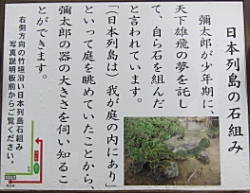 日本列島の石組み
彌太郎が少年期に、
天下雄飛の夢を託し
て、自ら石を組んだ
と言われています。
「日本列島は）我が庭の内にあり」
といって庭を眺めていたことから、
彌太郎の器の大きさを伺い知るこ
とができます。
右側方向の竹垣沿い日本列島石組み
写真説明板前からご覧ください。